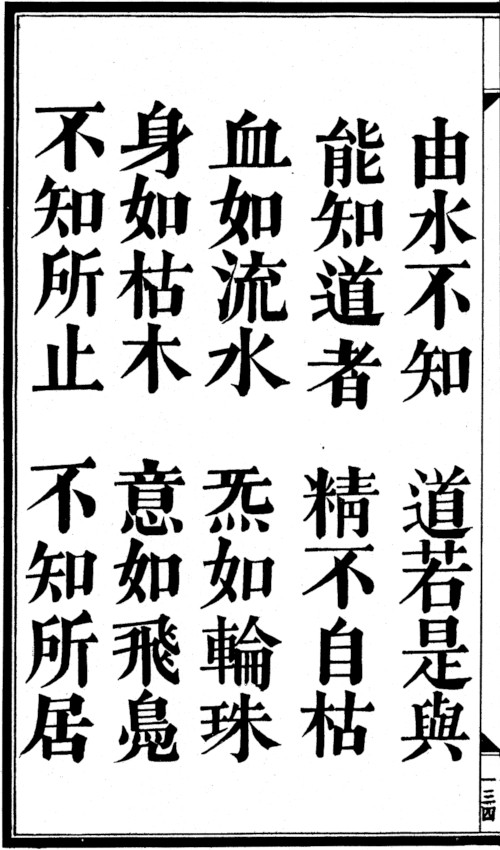 由水不知 道若是與
能知道者 精不自枯
血如流水 炁如輪珠
身如枯木 意如飛鳧
不知所止 不知所居
一三四